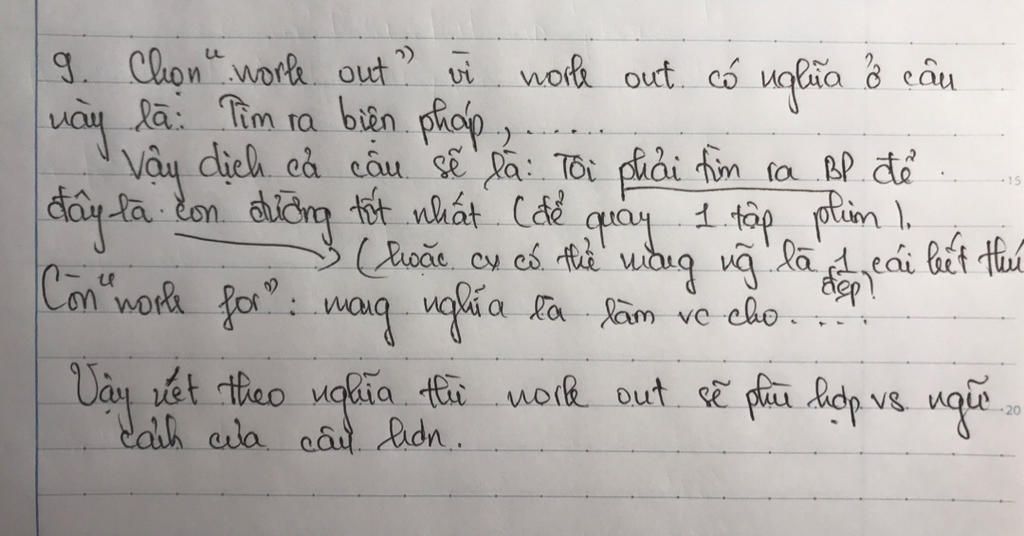 9. Chọn "work out" vì work out có nghĩa ở câu
này là: Tìm ra biện pháp, ......
Vậy dịch cả câu sẽ là: Tôi phải tìm ra BP để
đây là con đường tốt nhất (để quay 1 tập phim).
(hoặc cx có thể mang ng~ là 1 cái kết thú
đẹp)
Còn "work for": mang nghĩa là làm vc cho.....
Vậy xét theo nghĩa thì work out sẽ phù hợp vs ngữ
cảnh của câu hơn.
15
20